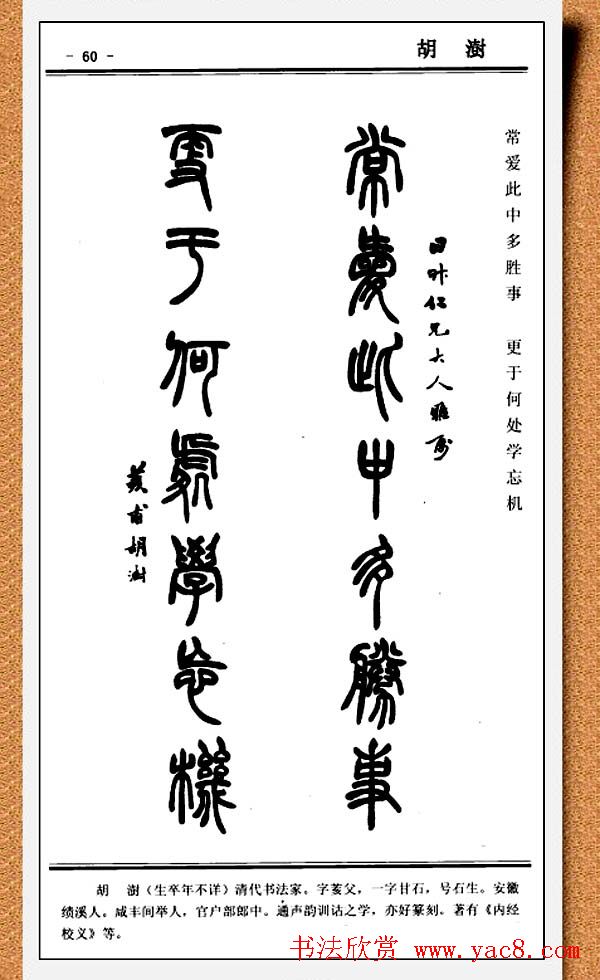 - 60 -
胡 澍
常爱此中多胜事 更于何处学忘机
日昨仁兄大人雅属
常爱此中多勝事
更于何處學忘機
荄甫胡澍
胡 澍（生卒年不详）清代书法家。字荄父，一字甘石，号石生。安徽
绩溪人。咸丰间举人，官户部郎中。通声韵训诂之学，亦好篆刻。著有《内经
校义》等。
书法欣赏 www.yac8.com